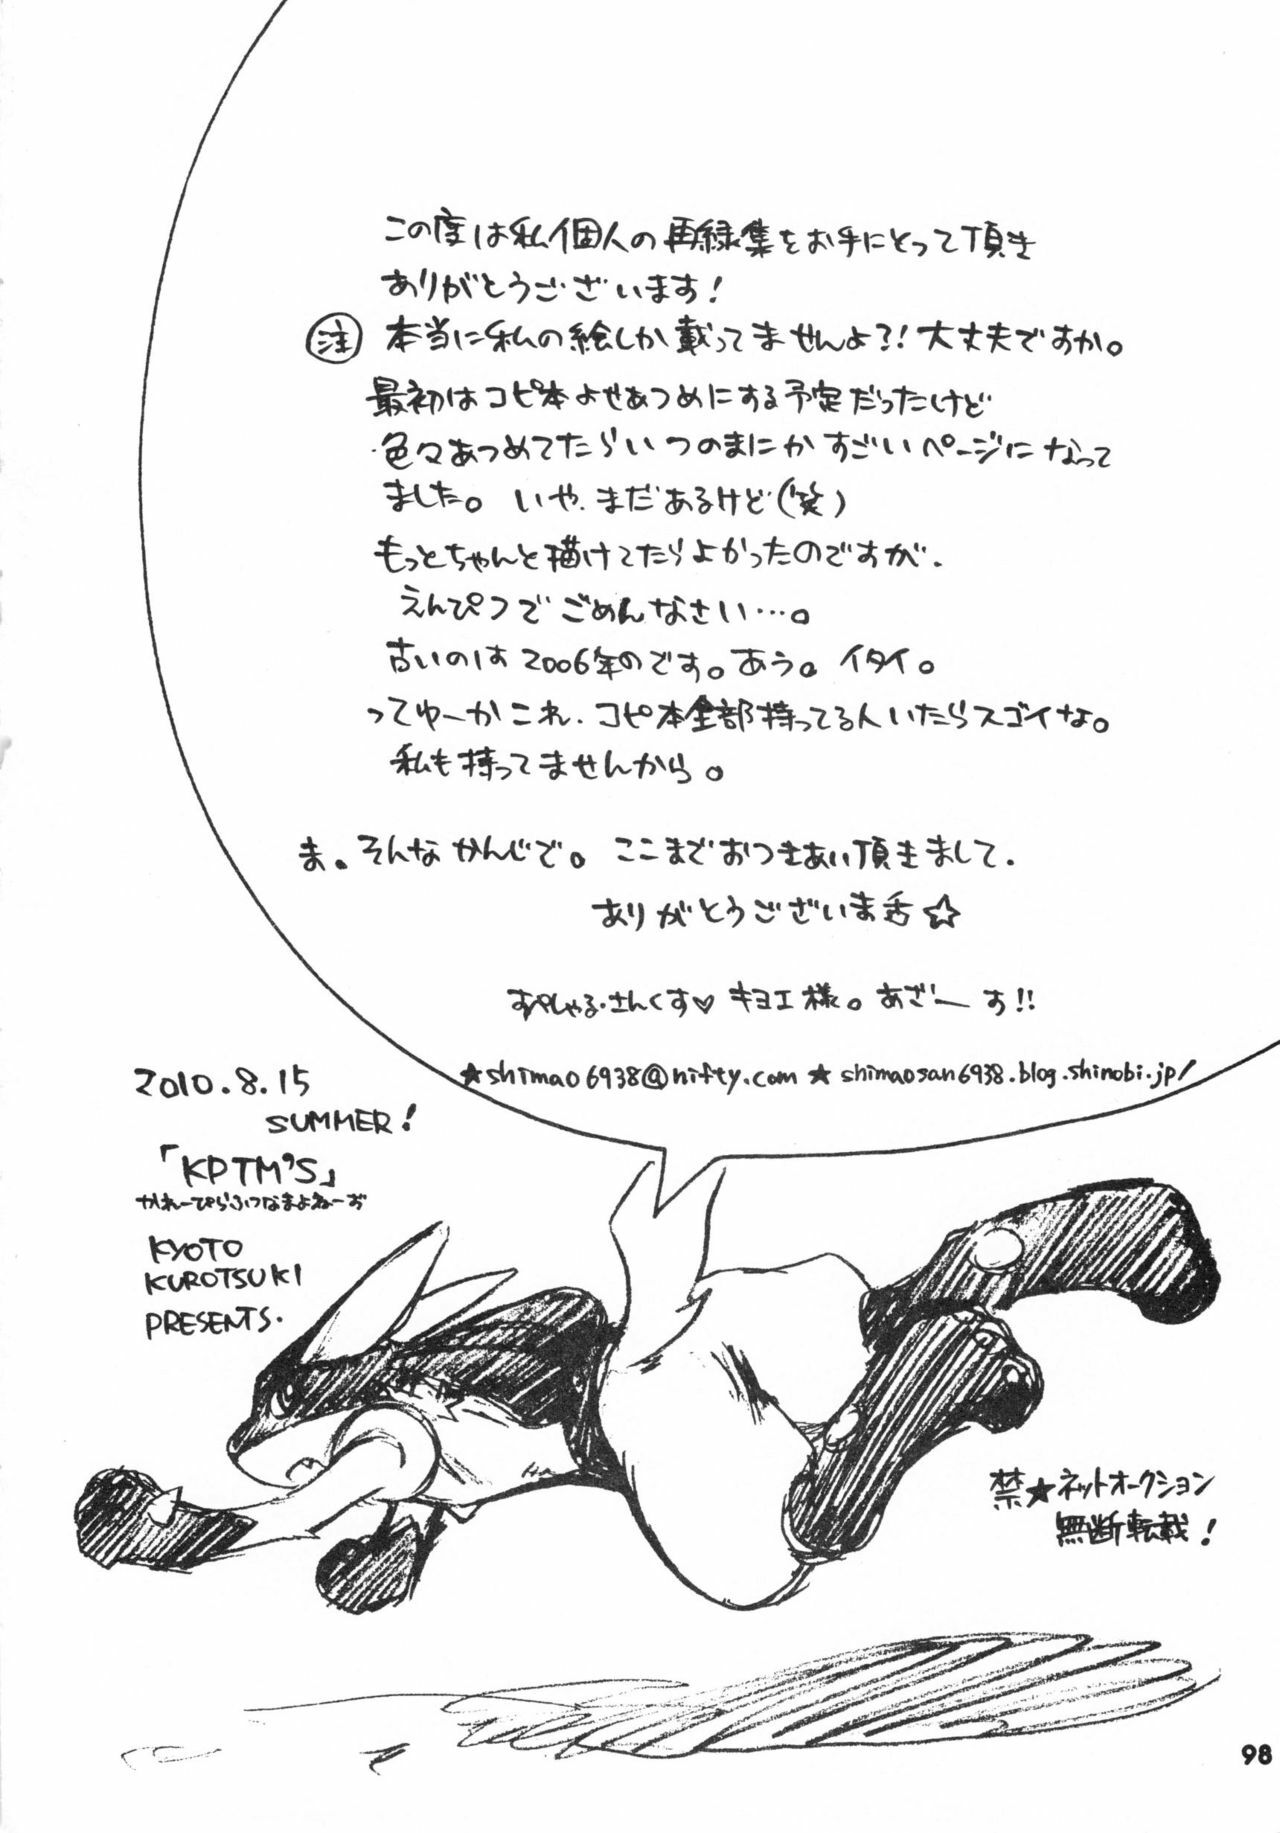 この度は私個人の再録集をお手にとって頂き
ありがとうございます!
注 本当に私の絵しか載ってませんよ?!大丈夫ですか。
最初はコピ本よせあつめにする予定だったけど
色々あつめてたらいつのまにかすごいページになって
ました。いや、まだあるけど(笑)
もっとちゃんと描けてたらよかったのですが、
えんぴつでごめんなさい…。
古いのは2006年のです。あう。イタイ。
ってゆーかこれ、コピ本全部持ってる人いたらスゴイな。
私も持ってませんから。
ま。そんなかんじで。ここまでおつきあい頂きまして、
ありがとうございま舌☆
すぺしゃる・さんくす♡ キヨエ様。あざーす!!
★shimao6938@nifty.com ★ shimaosan6938.blog.shinobi.jp/
2010.8.15
SUMMER!
「KPTM'S」
かれーぴらふつなまよねーず
KYOTO
KUROTSUKI
PRESENTS.
禁★ネットオークション
無断転載!
98